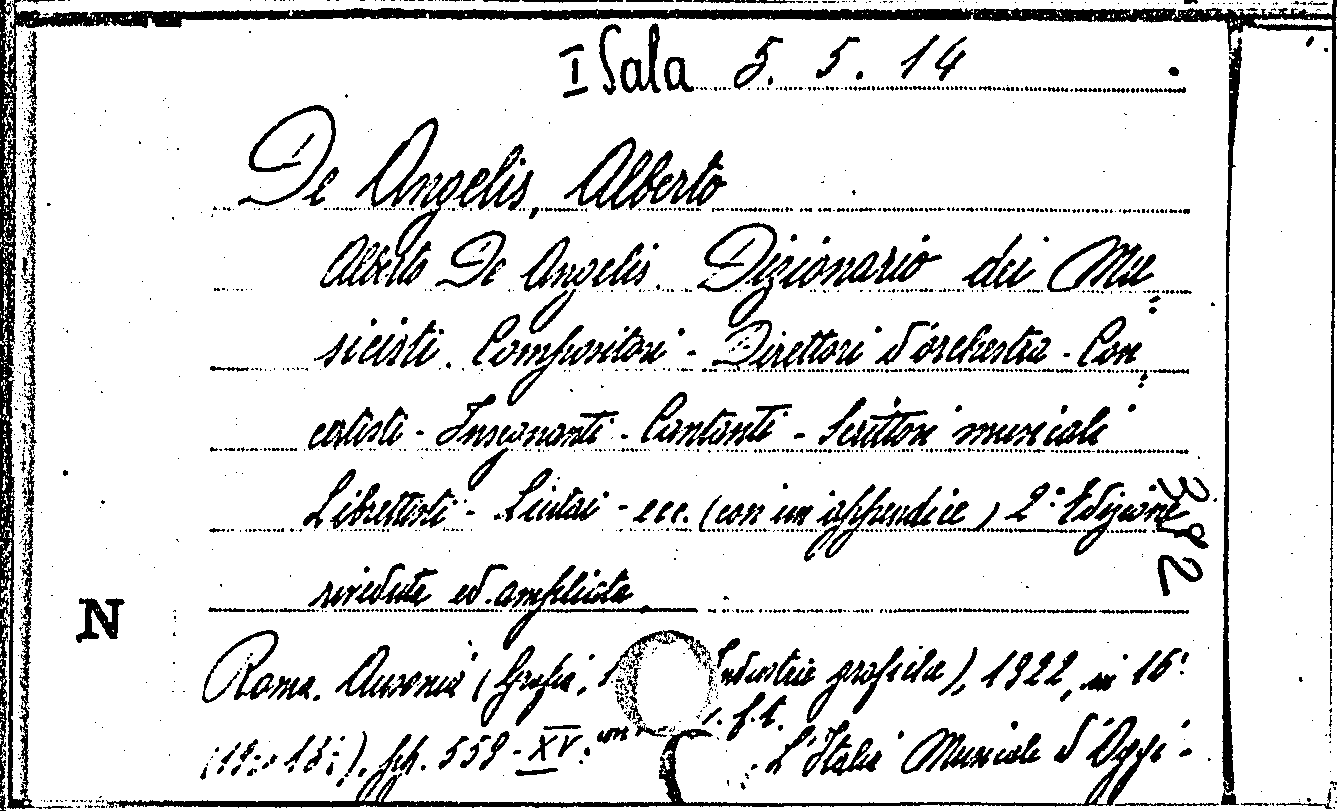 I Sala 5. 5. 14
De Angelis, Alberto
Alberto De Angelis. Dizionario dei Mu=
sicisti. Compositori - Direttori d'orchestra - Con=
certisti - Insegnanti - Cantanti - Scrittori musicali
Librettisti - Liutai - ecc. (con un appendice) 2ª Edizione
382
riveduta ed ampliata.
N
Roma. Ausonia (Grafia, Industrie grafiche), 1922, in 16°
pp. 559-XV. f.t.
L'Italia Musicale d'Oggi -